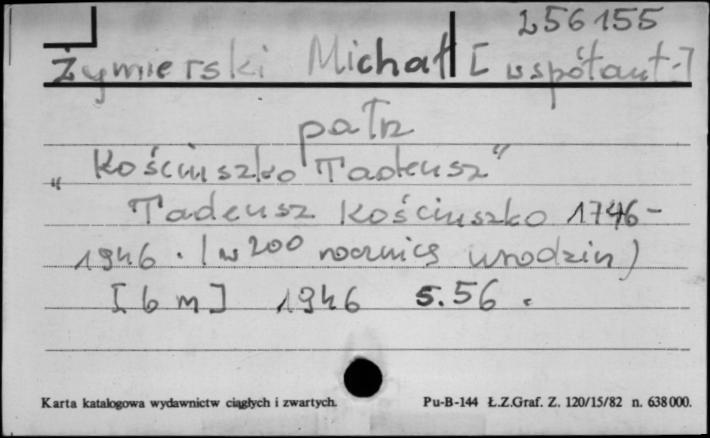 256155
Żymierski Michał [współaut.]
patrz
"Kościuszko Tadeusz"
Tadeusz Kościuszko 1746-
1946. (w 200 rocznicę urodzin)
[b m] 1946 s. 56.
Karta katalogowa wydawnictw ciągłych i zwartych.
Pu-B-144 Ł.Z.Graf. Z. 120/15/82 n. 638000.